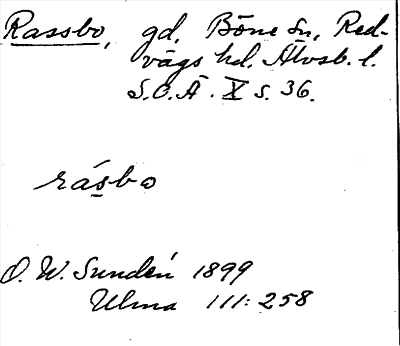 Rassbo, gd. Böne sn, Red-
vägs hd. Älvsb. l.
S.O.Ä. X s. 36.
rásbo
O. W. Sundén 1899
Ulma 111:258